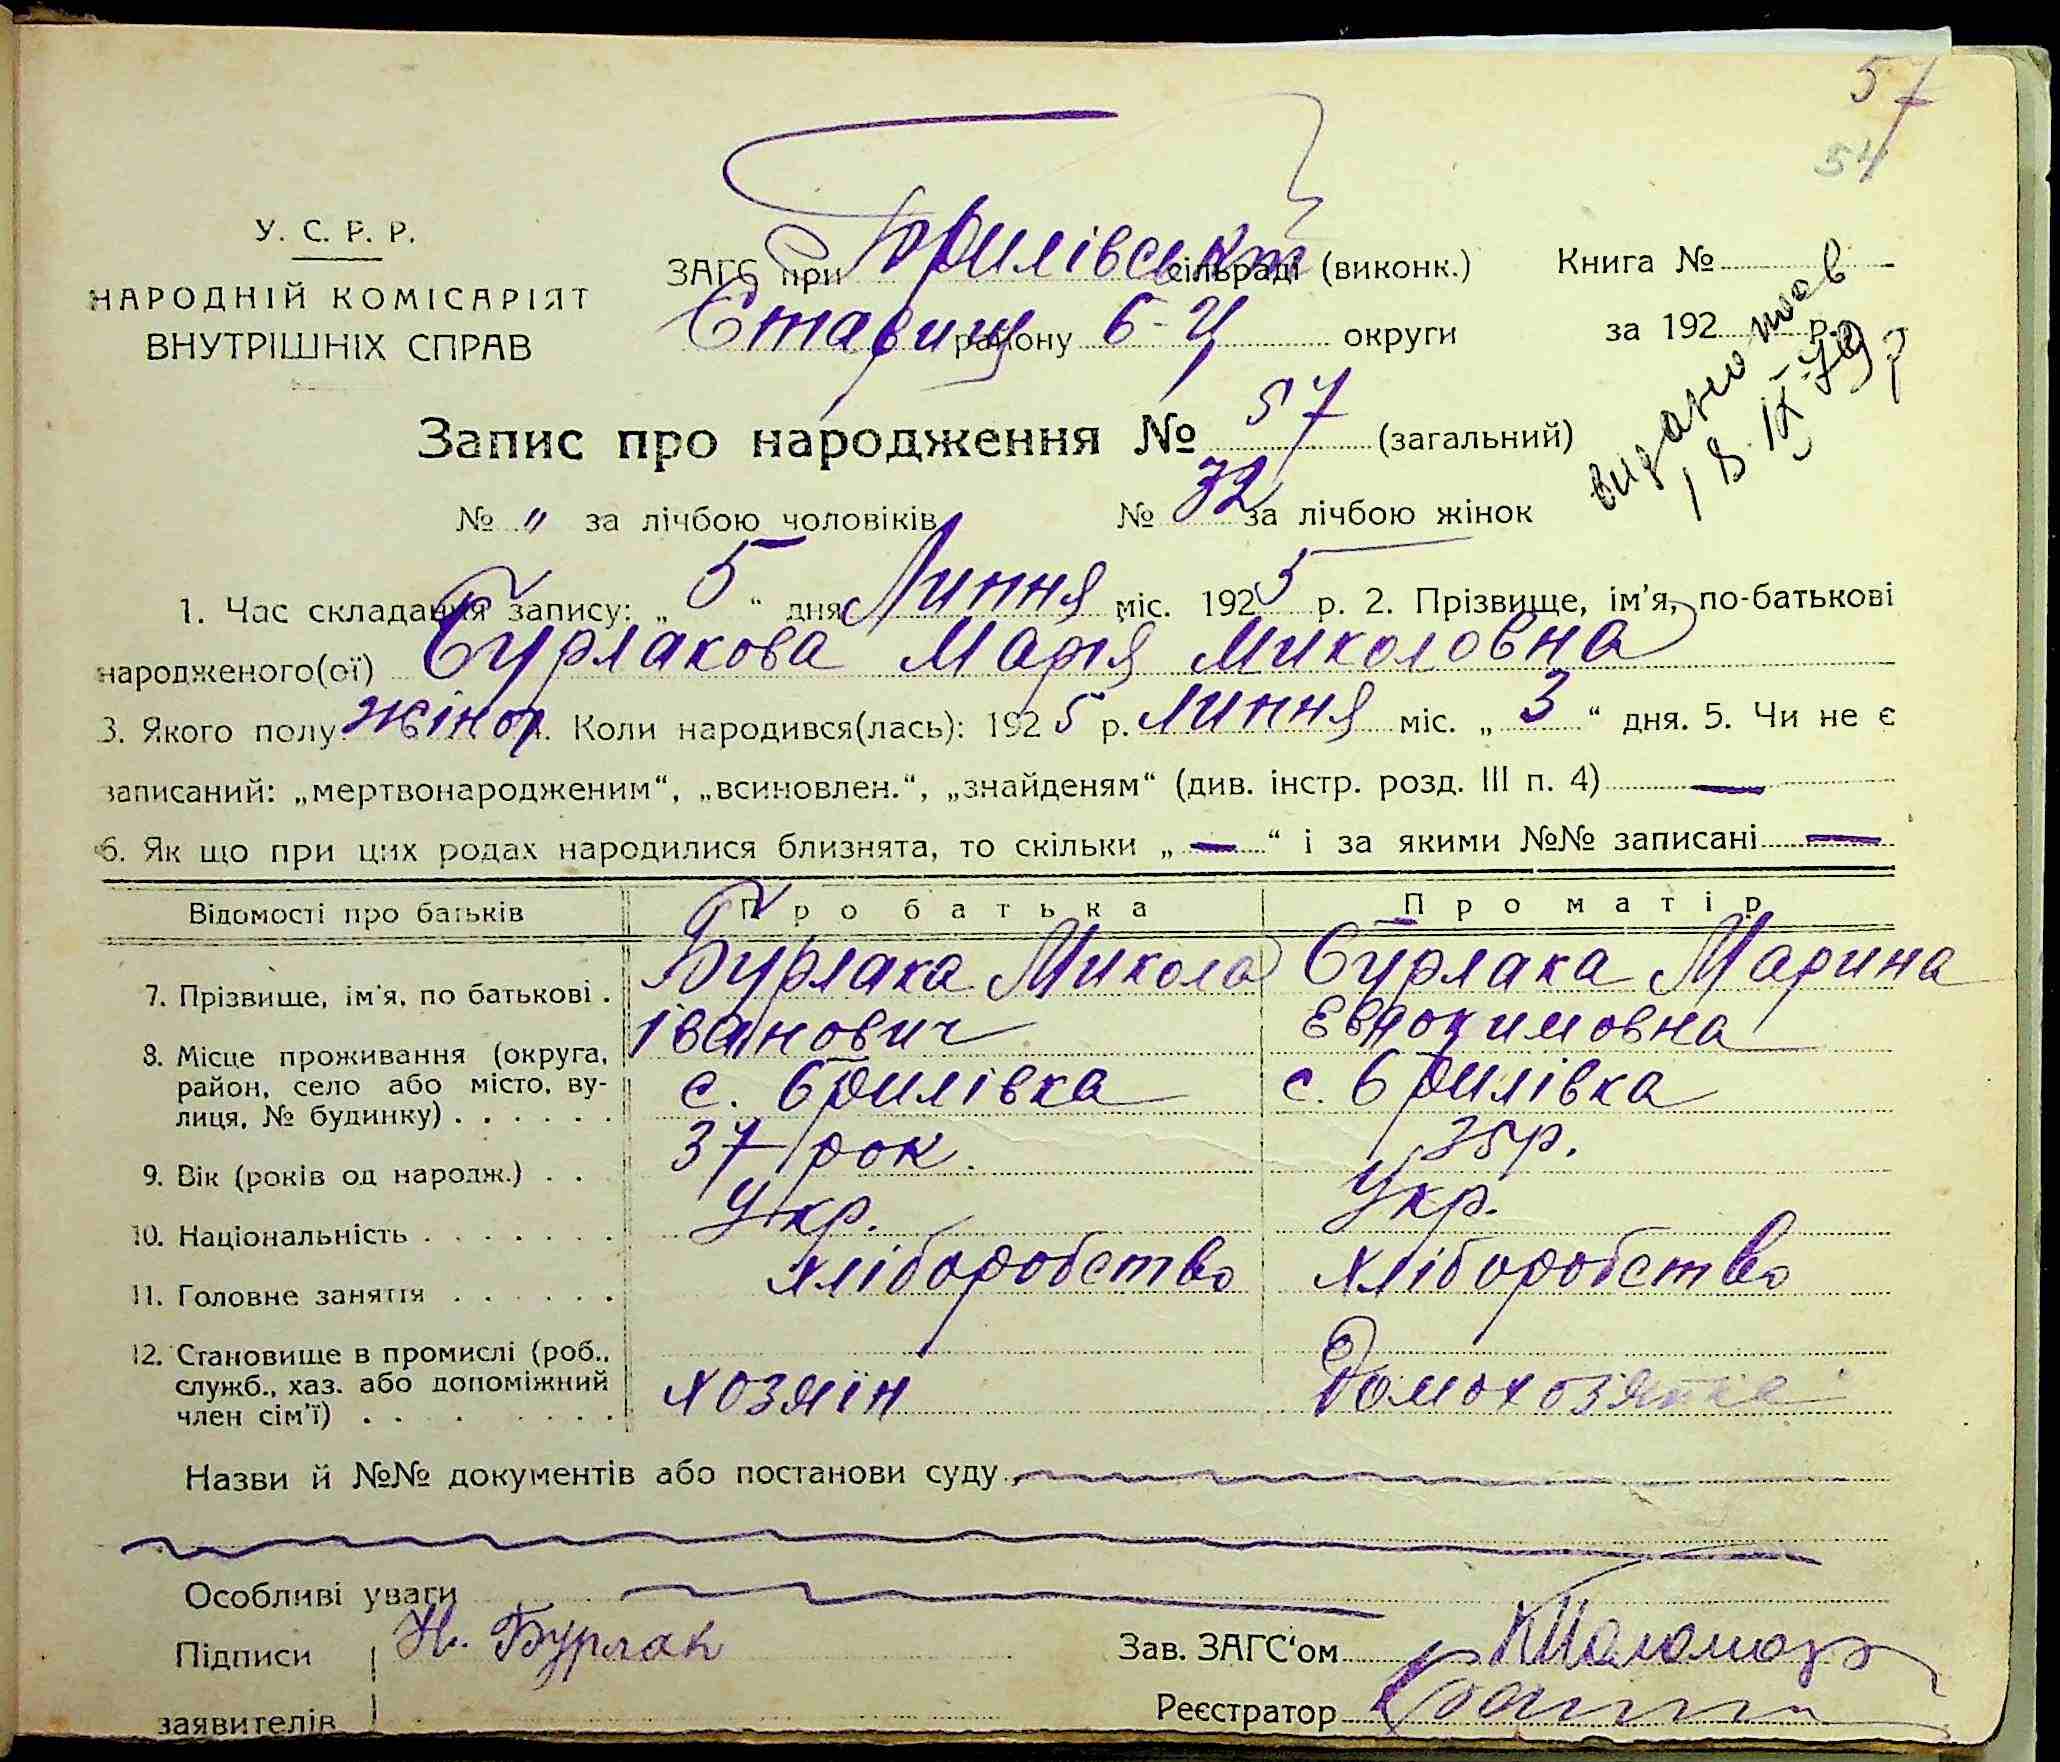 57
54
У. С. Р. Р.
НАРОДНІЙ КОМІСАРІЯТ
ВНУТРІШНІХ СПРАВ
ЗАГС при Брилівськ сільраді (виконк.)
Ставищ району Б-Ц округи
Книга №
за 192 р.
видано повт
18 IX 79 р
Запис про народження № 57 (загальний)
№ " за лічбою чоловіків № 32 за лічбою жінок
1. Час складання запису: „ 5 “ дня Липня міс. 1925 р. 2. Прізвище, ім'я, по-батькові
народженого(ої) Бурлакова Марія Миколовна
3. Якого полу жіноч. Коли народився(лась): 1925 р. Липня міс. „ 3 “ дня. 5. Чи не є
записаний: „мертвонародженим“, „всиновлен.“, „знайденям“ (див. інстр. розд. III п. 4) —
6. Як що при цих родах народилися близнята, то скільки „ — “ і за якими №№ записані —
Відомості про батьків Про батька Про матір
7. Прізвище, ім'я, по батькові . Бурлака Микола Іванович Бурлака Марина Евдокимовна
8. Місце проживання (округа,
район, село або місто, ву-
лиця, № будинку) . . . . . . с. Брилівка с. Брилівка
9. Вік (років од народж.) . . 37 рок. 35 р.
10. Національність . . . . . . . Укр. Укр.
11. Головне заняття . . . . . . хліборобство хліборобство
12. Становище в промислі (роб.,
служб., хаз. або допоміжний
член сім'ї) . . . . . . . хозяїн Домохозяйка
Назви й №№ документів або постанови суду
Особливі уваги
Підписи Н. Бурлак
заявителів
Зав. ЗАГС'ом
Реєстратор